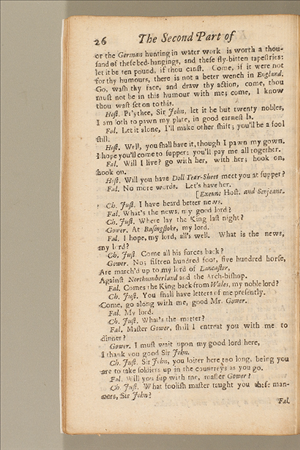 26 The Second Part of
or the German hunting in water work is worth a thou-
sand of these bed-hangings, and these fly-bitten tapestries:
let it be ten pound, if thou canst. Come, if it were not
for thy humours, there is not a better wench in England,
Go, wash thy face, and draw thy action, come, thou
must not be in this humour with me; come, I know
thou wast set on to this.
Host. Pr'ythee, Sir John, let it be but twenty nobles,
I am loth to pawn my plate, in good earnest la.
Fal. Let it alone, I'll make other shift; you'll be a fool
still.
Host. Well, you shall have it, though I pawn my gown.
I hope you'll come to supper: you'll pay me all together.
Fal. Will I live? go with her, with her; hook on,
hook on.
Host. Will you have Doll Tear-Sheet meet you at supper?
Fal. No more words. Let's have her.
[Exeunt Host. and Serjeant.
Ch. Just. I have heard better news.
Fal. What's the news, my good lord?
Ch. Just. Where lay the King last night?
Gower. At Basingstoke, my lord.
Fal. I hope, my lord, all's well. What is the news,
my lord?
Ch. Just Come all his forces back?
Gower. No; fifteen hundred foot, five hundred horse,
Are march'd up to my lord of Lancaster,
Against Northumberland and the Arch-bishop.
Fal. Comes the King back from Wales, my noble lord?
Ch. Just. You shall have letters of me presently.
Come, go along with me, good Mr. Gower.
Fal. My lord.
Ch. Just. What's the matter?
Fal. Master Gower, shall I entreat you with me to
dinner?
Gower. I must wait upon my good lord here,
I thank you good Sir John.
Ch. Just. Sir John, you loiter here too long, being you
are to take soldiers up in the countreys as you go.
Fal. Will you sup with me, master Gower?
Ch. Just. What foolish master taught you these man-
ners, Sir John?
Fal.